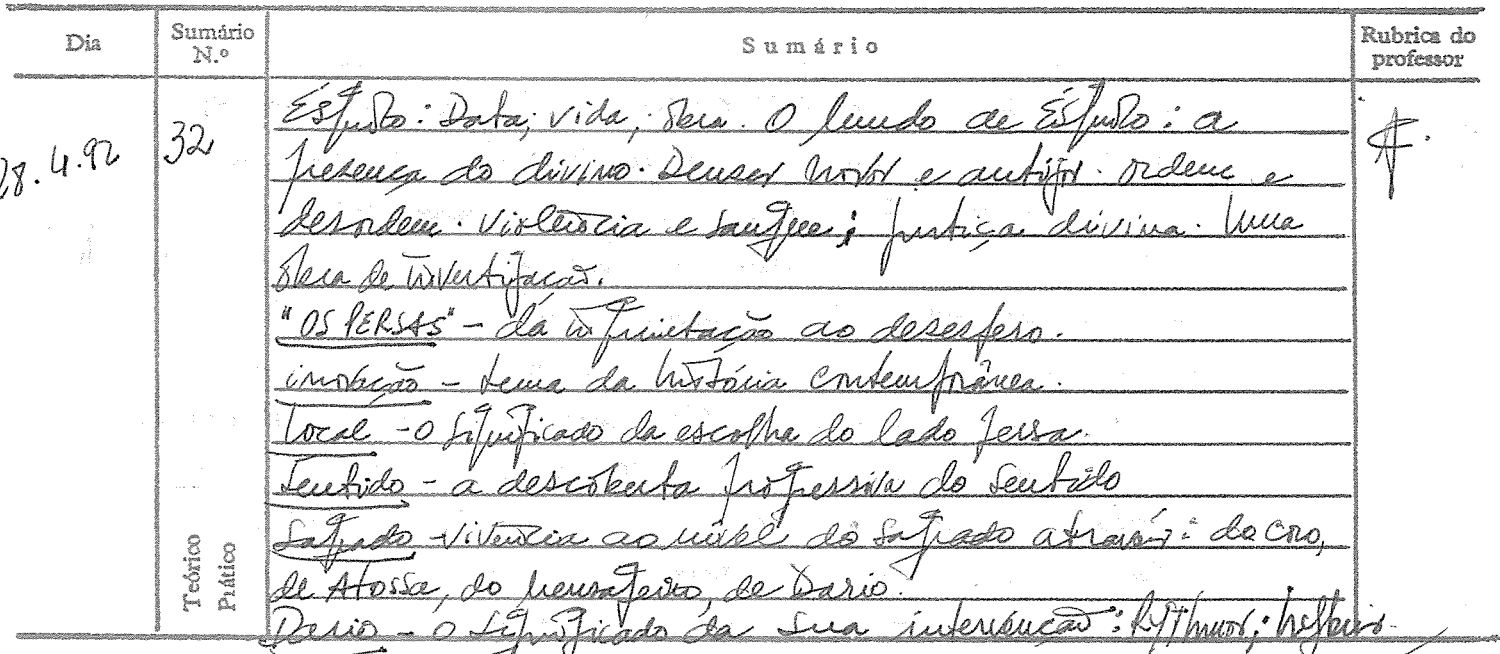 Dia
Sumário N.º
Sumário
Rubrica do professor
28.4.92
32
Ésquilo: Data; vida; obra. O mundo de Ésquilo: a
presença do divino. Deuses novos e antigos. ordem e
desordem. Violência e sangue; justiça divina. Uma
obra de investigação.
"OS PERSAS" - da inquietação ao desespero.
inovação - tema da história contemporânea.
Local - o significado da escolha do lado persa.
Sentido - a descoberta progressiva do sentido
Sagrado - vivência ao nível do sagrado através: do coro,
de Atossa, do mensageiro, de Dario.
Dario - o significado da sua intervenção: Rythmos;
Teórico
Prático